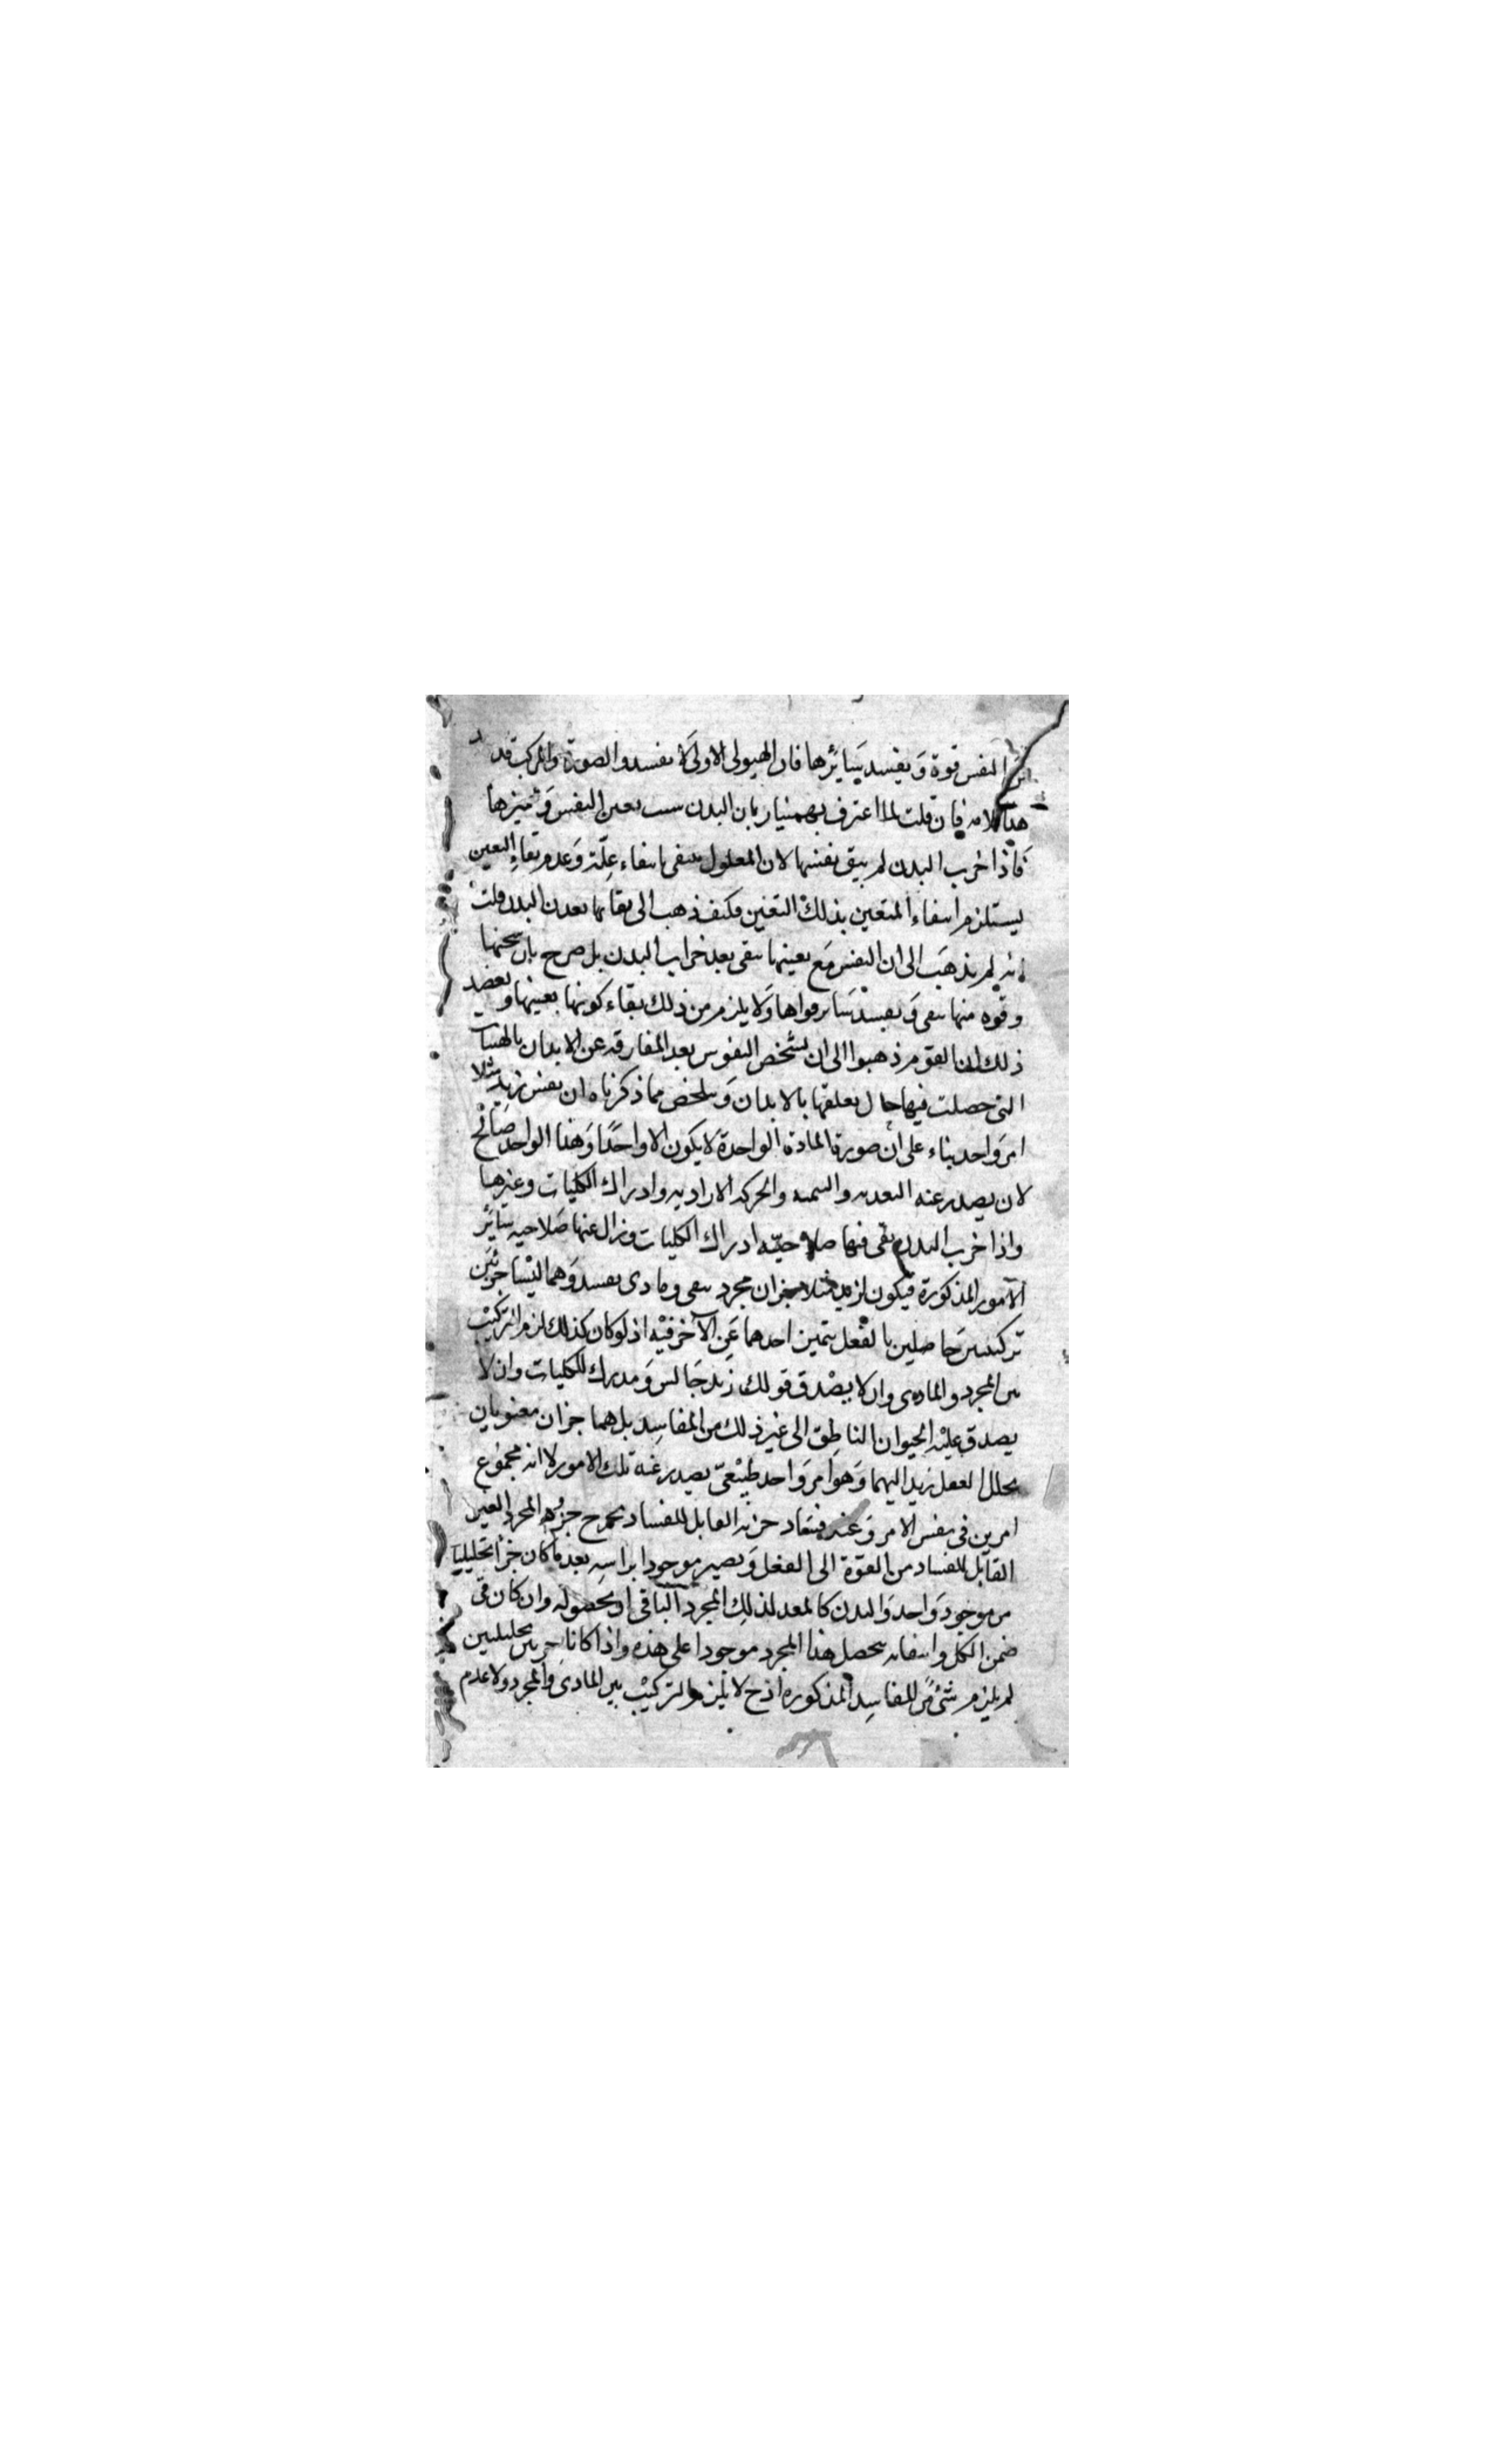 من النفس قوة وَيفسد سَايَرها فان الهيولى الاولى لا تفسد والصورة والمركب قد
هذا كلامه فان قلت لما اعترف بهمنيار بان البدن سبب تعين النفس وَتميزها
فَاذا خرب البدن لم يبق نفسها لان المعلول ينتفى بانتفاء علّته وَعدم بقاءِ التعين
يستلزم انتفاء المتعين بذلك التعين فكيف ذهب الى بقائها بعد البدن قلت
انه لم يذهَب الى ان النفس مَع تعينها تبقى بعد خراب البدن بل صرح بان
وقوة منها تبقى وَيفسد سَائر قواها وَلا يلزم من ذلك بقاء كونها بعينها و
ذلك ان القوم ذهبوا الى ان تشخص النفوس بعد المفارقة عن الابدان بالهيئات
التى حصلت فيها حال تعلقها بالابدان وَيتلخص مما ذكرناه ان نفس زيد مثلا
امر وَاحد بناء على ان صورة المادة الواحدة لا يكون الا واحدًا وَهذا الواحد صَالح
لان يصدر عنه التغذية والتنمية والحركة الارادية وادراك الكليات وغيرها
واذا خرب البدن بقى فيها صلاحيّة ادراك الكليات وزال عنها صَلاحية سَائر
الآمور المذكورة فيكون لزيد مثلا جزان مجرد يبقى ومادى يفسد وَهما ليْسَا جزئَين
تركيبيين حَاصلين بالفعل يتميز احدهما عَن الآخر فيْه اذ لو كان كذلك لزم التركيْب
من المجرد والمادى وان لا يصْدق قولك زَيد جَالس وَمدرك للكليات وان لا
يصدق عليْه الحيوان الناطِق الى غير ذلك من المفاسِد بل هما جزان معنويان
يحلل العقل زيدا اليهما وَهو امر وَاحد طبيْعىّ يصدر عنه تلك الامور لا انه مجموع
امرين فى نفس الامر وَعند فسَاد جزئه القابل للفساد يخرج جزؤه المجرد الغير
القابل للفساد من القوّة الى الفعل وَيصير موجودا براسِه بعد ما كان جزأ تحليليا
من موجود وَاحد وَالبدن كالمعد لذلِك المجرد الباقى اذ بحصوله وان كان فى
ضمن الكل وانتفائه يحصل هذا المجرد موجودا على هذه واذا كانا جزئين تحليليين
لم يلزم شئ مّن المفاسِد المذكورة اذ ح لا يلزم التركيْب بين المادى وَالمجرد ولا عدم